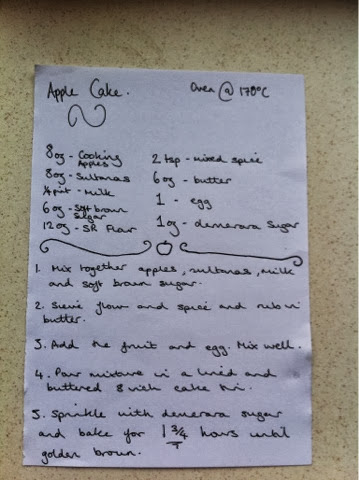 Apple Cake.
Oven @ 170°C
8oz - Cooking Apples
8oz - Sultanas
¼pint - Milk
6oz - Soft brown Sugar
12oz - SR Flour
2 tsp - mixed spice
6oz - butter
1 - egg
1oz - demerara Sugar
1. Mix together apples, sultanas, milk
and soft brown sugar.
2. Sieve flour and spice and rub in
butter.
3. Add the fruit and egg. Mix well.
4. Pour mixture in a lined and
buttered 8 inch cake tin.
5. Sprinkle with demerara sugar
and bake for 1 3/4 hours until
golden brown.